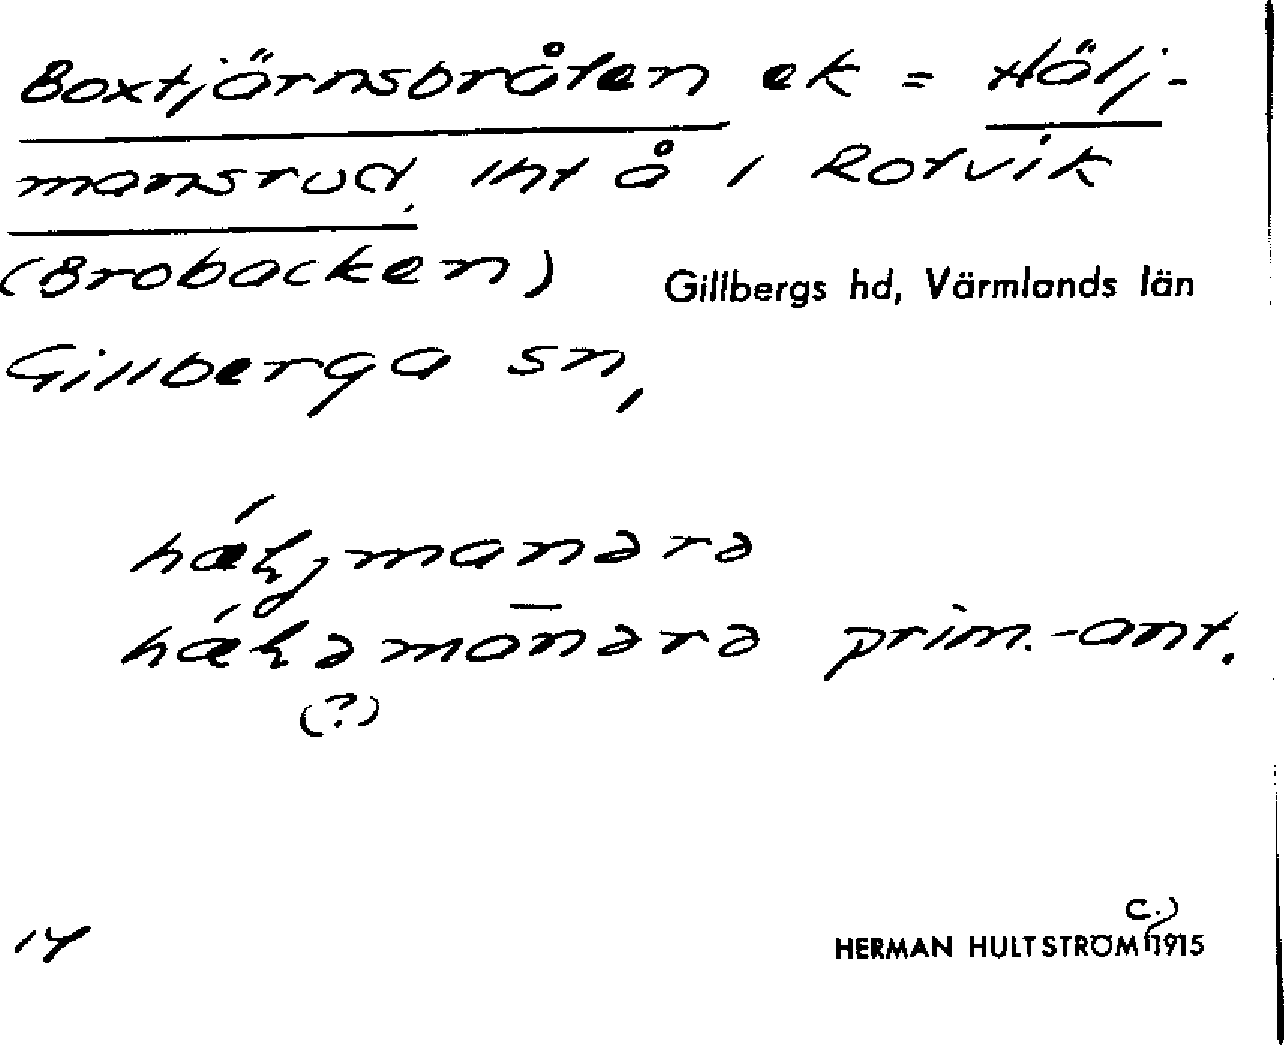 Boxtjärnsbråten ek = Hölj-
mansrud, lht å i Rotvik
(Brobacken)
Gillbergs hd, Värmlands län
Gillberga sn,
prim.-ant.
(?)
14
c.)
HERMAN HULTSTRÖM 1915